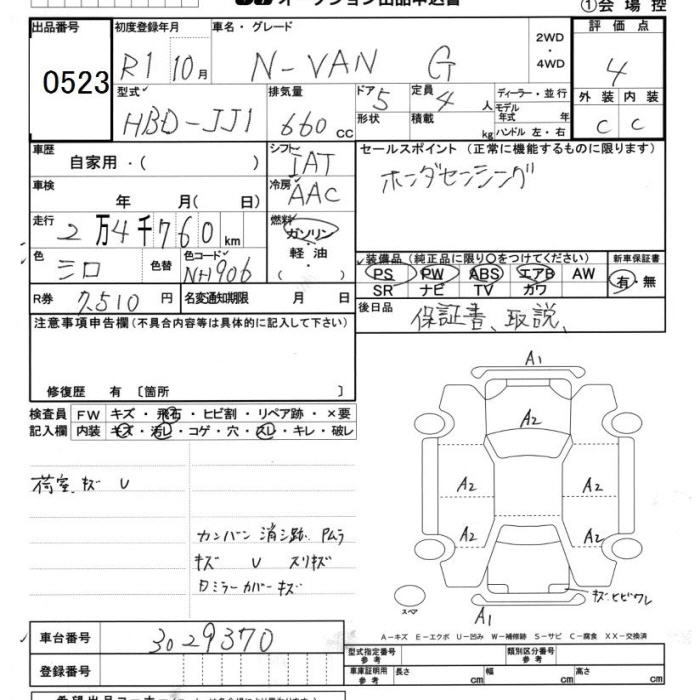 オークション出品申込書
①会場控
出品番号 初度登録年月 車名・グレード 評価点
0523 R1 10月 N-VAN G 2WD・4WD 4
型式 排気量 ドア 定員 ディーラー・並行 外装 内装
HBD-JJ1 660cc 5 4人 モデル年式 年 C C
形状 積載 kg ハンドル 左・右
車歴 シフト セールスポイント(正常に機能するものに限ります)
自家用・( ) IAT ホンダセンシング
車検 年 月( 日) 冷房 AAC
走行 2万4千760km 燃料 ガソリン
軽油
( )
色 三口 色替 色コード NH906
装備品(純正品に限り○をつけてください) 新車保証書
PS PW ABS エアB AW 有・無
SR ナビ TV カワ
R券 7,510円 名変通知期限 月 日
後日品 保証書、取説、
注意事項申告欄(不具合内容等は具体的に記入して下さい)
修復歴 有〔箇所 〕
検査員 FW キズ・飛石・ヒビ割・リペア跡・×要
記入欄 内装 キズ・汚レ・コゲ・穴・スレ・キレ・破レ
荷室キズ U
カンバン消シ跡 Pムラ
キズ U スリキズ
Dミラーカバーキズ
A1
A2
A2 A2
A2 A2
キズヒビワレ
スペア
A1
A-キズ E-エクボ U-凹み W-補修跡 S-サビ C-腐食 XX-交換済
車台番号 3029370
登録番号
型式指定番号 参考 類別区分番号 参考
車庫証明用 参考 長さ cm 幅 cm 高さ cm